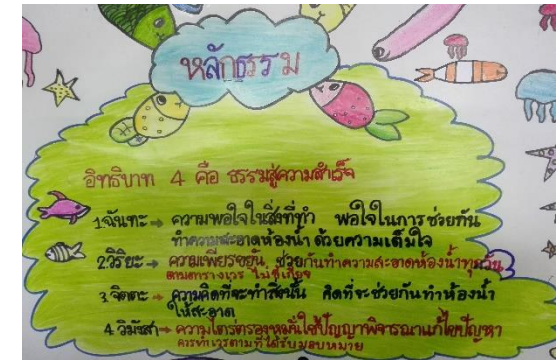 หลักธรรม
อิทธิบาท 4 คือ ธรรมสู่ความสำเร็จ
1.ฉันทะ → ความพอใจในสิ่งที่ทำ พอใจในการช่วยกัน
ทำความสะอาดห้องน้ำด้วยความเต็มใจ
2.วิริยะ → ความเพียรขยัน ช่วยกันทำความสะอาดห้องน้ำทุกวัน
ตามตารางเวร ไม่ขี้เกียจ
3.จิตตะ → ความคิดที่จะทำสิ่งนั้น คิดที่จะช่วยกันทำห้องน้ำ
ให้สะอาด
4.วิมังสา → ความไตร่ตรองหมั่นใช้ปัญญาพิจารณาแก้ไขปัญหา
ควรทำเวรตามที่ได้รับมอบหมาย